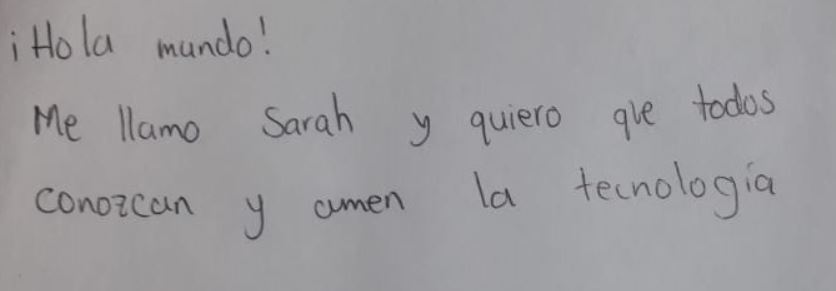 ¡Hola mundo!
Me llamo Sarah y quiero que todos
conozcan y amen la tecnología